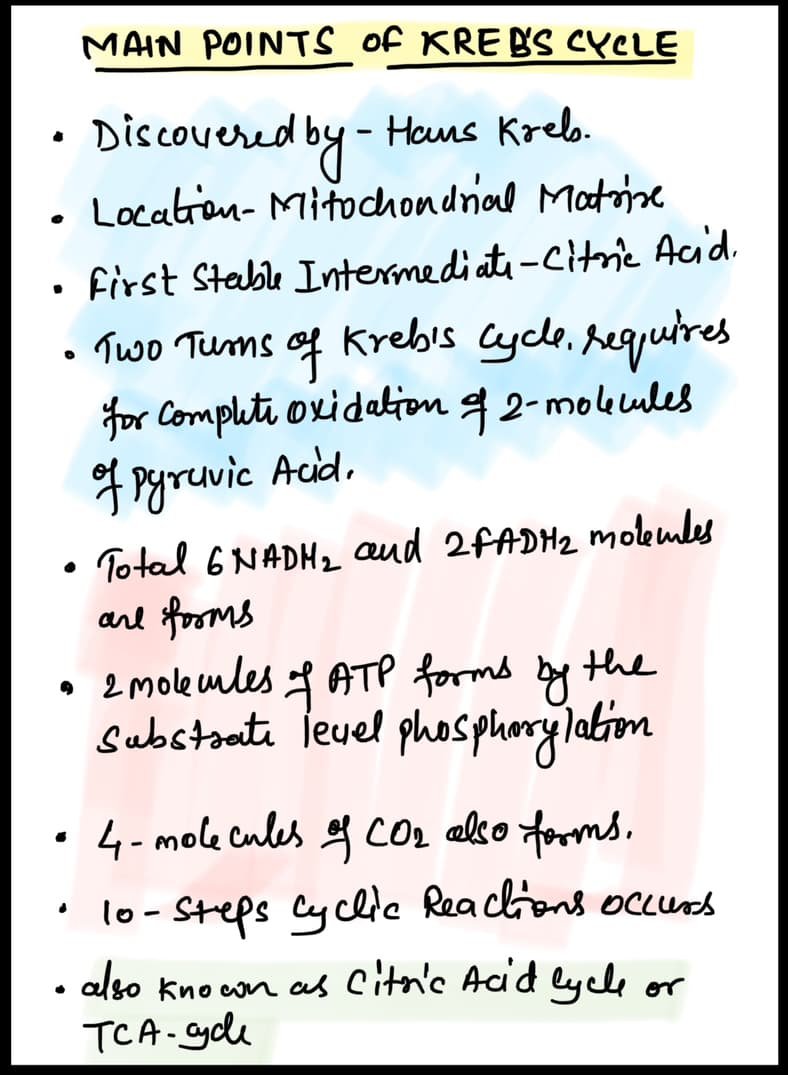 MAIN POINTS OF KREB'S CYCLE
• Discovered by - Hans Kreb.
• Location - Mitochondrial Matrix
• First Stable Intermediate - Citric Acid.
• Two Turns of Kreb's Cycle, requires
for Complete oxidation of 2-molecules
of pyruvic Acid.
• Total 6 NADH₂ and 2 FADH₂ molecules
are forms
• 2 molecules of ATP forms by the
Substrate level phosphorylation
• 4 - molecules of CO₂ also forms.
• 10 - Steps Cyclic Reactions occurs
• also known as Citric Acid Cycle or
TCA - cycle